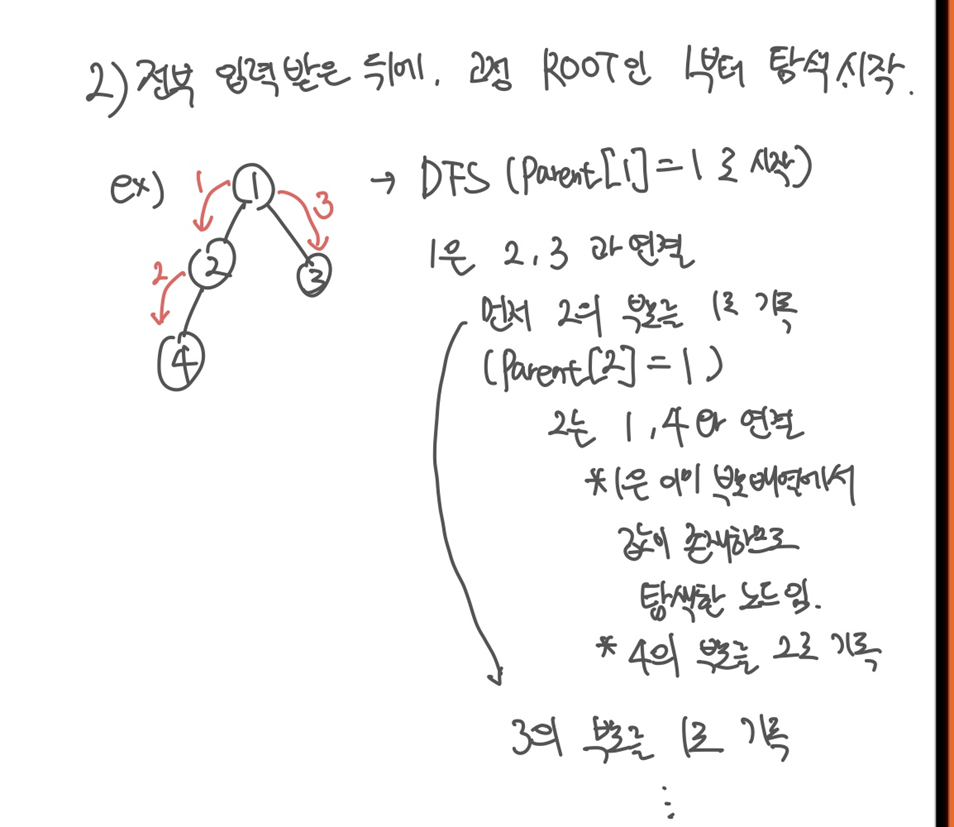 2) 전부 입력 받은 뒤에, 고정 ROOT인 1부터 탐색 시작.
ex) → DFS (Parent[1] = 1 로 시작)
1
2
3
1
2
3
4
1은 2, 3 과 연결
먼저 2의 부모를 1로 기록
(Parent[2] = 1)
2는 1, 4와 연결
*1은 이미 부모배열에서
값이 존재하므로
탐색한 노드임.
* 4의 부모를 2로 기록
3의 부모를 1로 기록
⋮